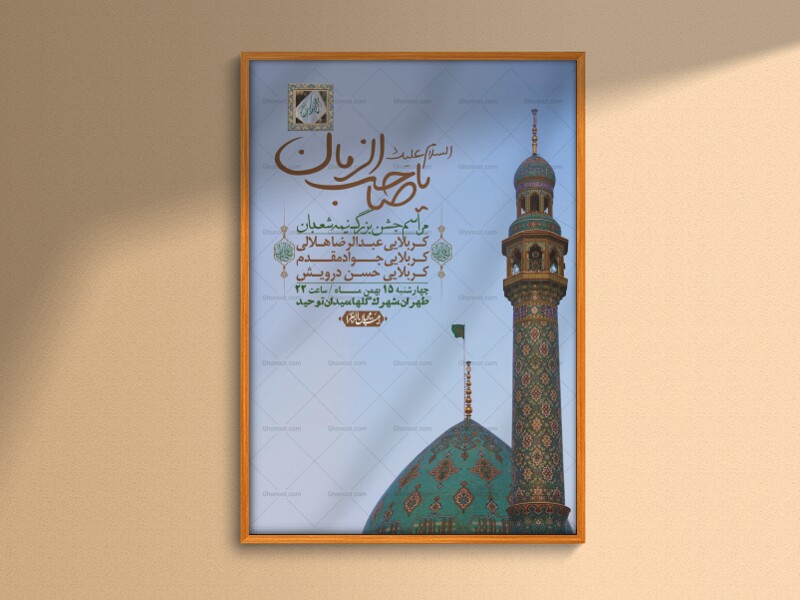 السلام علیک
یا صاحب الزمان
مراسم جشن بزرگ نیمه شعبان
کربلایی عبدالرضا هلالی
کربلایی جواد مقدم
کربلایی حسن درویش
چهارشنبه ۱۵ بهمن ماه / ساعت ۲۲
طهران، شهرک گلها، میدان توحید
Ghonoot.com